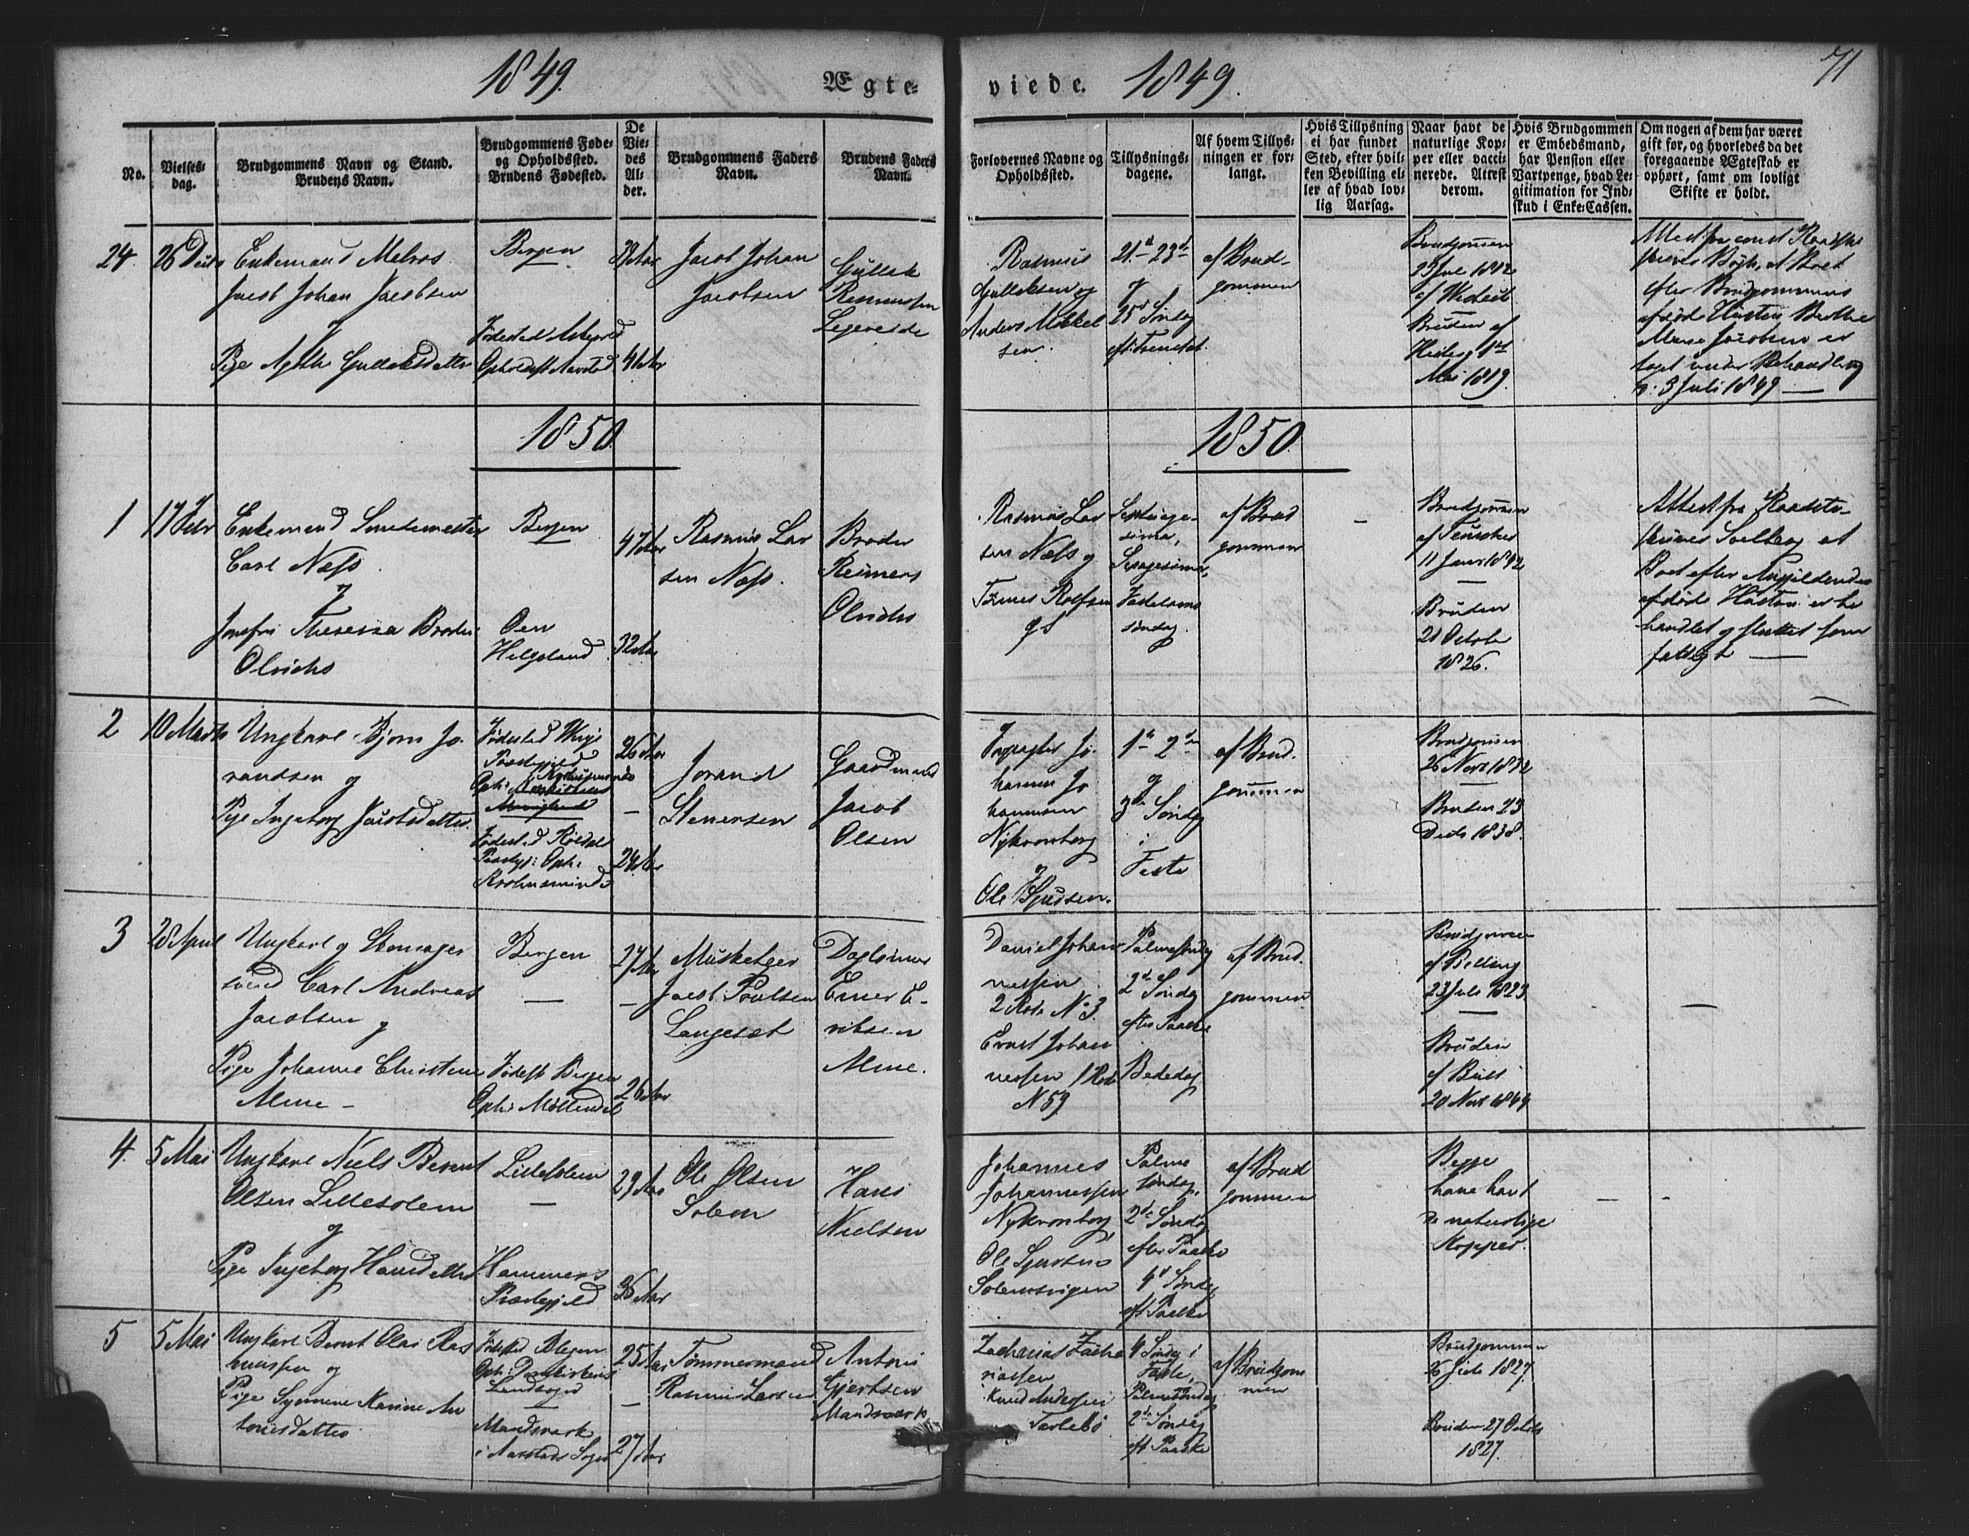 1849.
Ægte-
viede.
1849.
71
No.
Vielses-
dag.
Brudgommens Navn og Stand.
Brudens Navn.
Brudgommens Føde-
og Opholdssted.
Brudens Fødested.
De
Vie-
des
Al-
der.
Brudgommens Faders
Navn.
Brudens Faders
Navn.
Forlovernes Navne og
Opholdssted.
Tillysnings-
dagene.
Af hvem Tillys-
ningen er for-
langt.
Hvis Tillysning
ei har fundet
Sted, efter hvil-
ken Bevilling el-
ler af hvad lov-
lig Aarsag.
Naar havt de
naturlige Kop-
per eller vacci-
nerede. Attest
derom.
Hvis Brudgommen
er Embedsmand,
har Pension eller
Vartpenge, hvad Le-
gitimation for Ind-
skud i Enke-Cassen.
Om nogen af dem har været
gift før, og hvorledes da det
foregaaende Ægteskab er
ophørt, samt om lovligt
Skifte er holdt.
24
26 Decbr
Enkemand
Jacob Johan Jacobsen
og
Pige Gullaksdatter
Bergen
Fødested Askøen
Opholdst Aarstad
39 Aar
41 Aar
Jacob Johan
Jacobsen
Gullak
Rasmussen
Rasmus
Gullaksen og
Anders Mikkel
sen.
21d 22d
og
23d Søndag
eft: Trinitat.
af Brud-
gommen
Brudgommen
1812
af
Bruden af
1ste
Mai 1819.
Attest fra
at Boet
efter Brudgommens
afdøde Hustru Berthe
Marie Jacobsen er
taget under Behandling
3 Juli 1849
1850
1850
1
17 Febr
Enkemand Smedemester
Carl Næss
og
Jomfru Theresia Broder
Olrichs
Bergen
Øen
Helgoland
47 Aar
32 Aar
Rasmus Lar
sen Næss.
Broder
Reimers
Olrichs
Rasmus Lar
sen Næss og
Tønnes Rolfsen
Septuage-
sima,
Sexagesima,
Fastelavns
søndag.
af Brud
gommen
Brudgommen
af
11 Januar 1842
Bruden
21 Octobr
1826.
Attest fra Raadstu
skriver at
Boet efter
afdøde Hustru er be
handlet og sluttet som
fattigt
2
10 Marts
Ungkarl Bjørn Jo
randsen og
Pige Ingeborg Jacobsdatter
Fødested
Præstegjeld
Oph:
Fødested Røldal
Præstgj: Oph:
26 Aar
24 Aar
Jorand
Stenersen
Gaardmand
Jacob
Olsen
Jo
hannes Jo
hannessen
Nykronborg
og
Ole Sjursen.
1ste 2den
og
3die Søndag
i
Faste
af Brud
gommen
Brudgommen
26 Novr 1832
Bruden 23
Decbr 1838.
3
28 April
Ungkarl og Skomager
svend Carl Andreas
Jacobsen og
Pige Johanne Christine
Bergen
Fødest Bergen
Oph: Møllendal
27 Aar
26 Aar
Musketeer
Jacob Poulsen
Langesæt
Daglønner
Enier E-
riksen
Daniel Johan
nessen
2 Rode No 3.
Ernst Johan
nessen 1 Rod
No 59
Palmesøndag
2d Søndag
efter Paaske
Bededag
af Brud
gommen
Brudgommen
af
23 Juli 1823
Bruden
af
20 Novbr 1849
4
5 Mai
Ungkarl Niels Bernt
Olsen Lillesolem
og
Pige Ingeborg Hansdatter
Lillesolem
Hammers
Præstegjeld
29 Aar
36 Aar
Ole Olsen
Solem
Hans
Nielsen
Johannes
Johannessen
Nykronborg
Ole Sjursens
Solemsvigen
Palme
søndag,
2d Søndag
efter Paaske
4d Søndag
eft Paaske
af Brud
gommen
Begge
have havt
de naturlige
Kopper.
5
5 Mai
Ungkarl Bernt Olai Ras
mussen og
Pige Synneve Karine An
tonisdatter
Fødested Bergen
Oph: Domkirkens
Landsogn
Mandsværk
i Aarstads Sogn
25 Aar
27 Aar
Tømmermand
Rasmus Larsen
Antoni
Gjertsen
Mandsværk
Zacharias Zacha
riassen
Knud Andersen
Tarlebø
4 Søndag i
Faste,
Palmesøndag
2d Søndag
eft Paaske
af Brudgom
men
Brudgommen
1827
Bruden 27 Octob
1827.